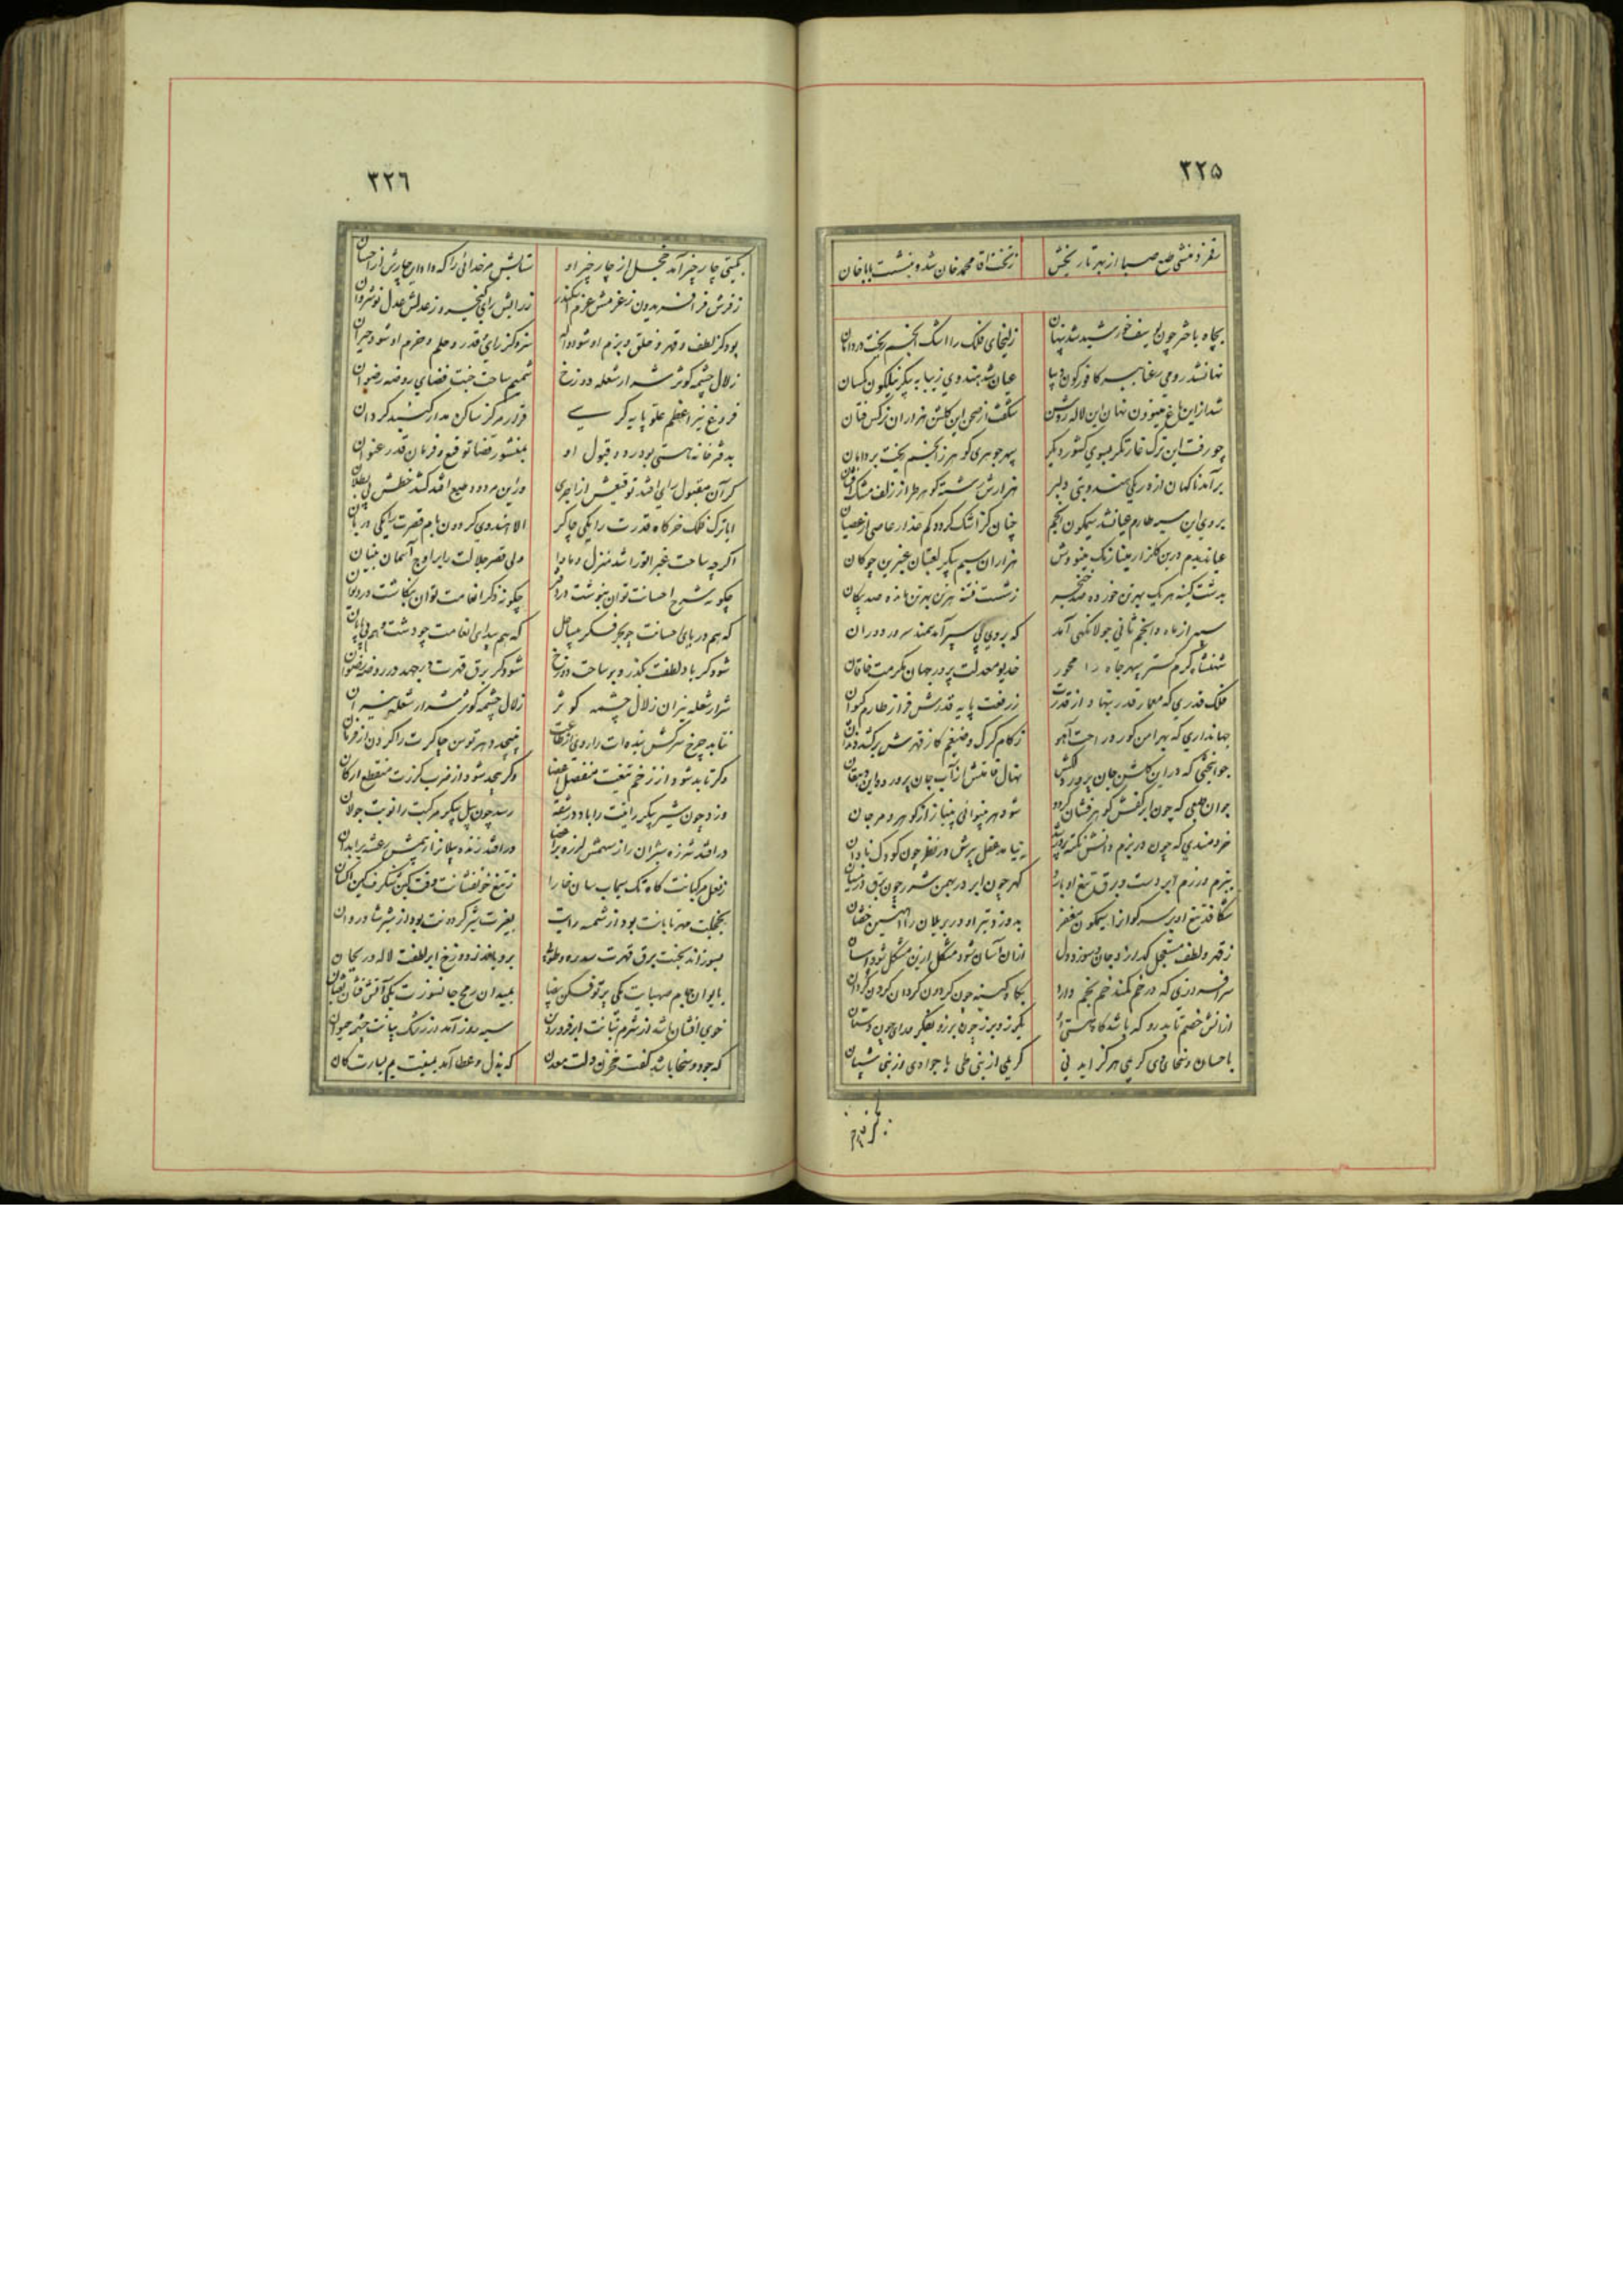 ۳۲۵
رقم زد منشی طبع صبا از بهر تاریخش ز تخت آقا محمد خان شد و بنشست باباخان
بچاه باختر چون یوسف خورشید شد پنهان زلیخای فلک را اشک انجم ریخت در دامان
نهان شد رومی کافورگون دیبا عیان شد هندوی زیبا به پیکر نیلگون کسان
شد از این باغ مینوون نهان این لاله روشن شکفت از صحن این گلشن هزاران نرگس فتان
چو رفت این ترک غارتگر بسوی کشور دیگر سپهر جوهری گوهر ز انجم ریخت بر دامان
برآمد ناگهان از ره یکی هندو بتی دلبر هزارش رشته گوهر طراز زلف مشک افشان
بروی این سیه طارم عیان شد سیمگون انجم چنان کز اشک گردد گم عذار عاصی از عصیان
عیان دیدم درین گلزار مینا رنگ مینووش هزاران سیم پیکر لعبتان عنبرین چوگان
بدشت کینه هر یک بهر تن خورده صد خنجر ز شست فتنه هر تن بهر تن صد پیکان
سپهر از ماه و انجم ثانی جولانگهی آمد که بر وی پی سپر آمد سمند سرور دوران
شهنشاه کرم گستر سپهر جاه را محور خدیو معدلت پرور جهان مکرمت خاقان
فلک قدری که معمار قدر بنهاد از قدرت ز رفعت پایه قدرش فراز طارم کیوان
جهانداری که بهر امن گور و راحت آهو ز کام گرگ و ضیغم کاز قهرش برکند دندان
جوانبختی که در این گلشن جان پرور دلکش نهال قامتش از آب جان پرورده این دهقان
جوان طبعی که چون ابر کفش گوهر فشان گردد شود هر بینوائی بی نیاز از گوهر و مرجان
خردمندی که چون در بزم دانش نکته پرور شد نیاید عقل پیرش در نظر چون کودک نادان
ببزم و رزم ابر دست و برق تیغ او بارد گهر چون ابر در بهمن شرر چون برق در نیسان
شکافد تیغ او بر سر گوان را سیمگون مغفر بدوزد تیر او در بر یلان را آهنین خفتان
ز قهر و لطف مستعجل گدازد جان و سوزد دل از آن آسان شود مشکل ازین مشکل شود آسان
سرافرازی که در خم کمند خم بخم دارد بگاه کینه چون گردون گردان گردن گردان
از آنش خصم تابد رو که باشد گاه چستی او بگرز و برز چون برزو بفکر و رای چون دستان
باحسان و سخا و می کریمی هرگز آید نی کریمی از بنی طی یا جوادی از بنی شیبان
۳۲۶
بگیتی چار چیز آمد خجل از چار چیز او ستایش مر خدائی را که داد این چارش از احسان
ز فرش فر افریدون ز عزمش عزم اسکندر ز رایش رای کیخسرو ز عدلش عدل نوشروان
بود کز لطف و قهر و خلق و بزم او شود واله سزد کز رای و قدر و حلم و حزم او شود حیران
زلال چشمه کوثر شرار شعله دوزخ شمیم ساحت جنت فضای روضه رضوان
فروغ نیر اعظم علو پایه کرسی قرار مرکز ساکن مدار گنبد گردان
بدفترخانه هستی بود رد و قبول او بمنشور قضا توقیع و فرمان قدر عنوان
گر آن مقبول رای افتد توقیعش از اجری ور این مردود طبع افتد کشد خطش پی بطلان
ایا ترک فلک خرگاه قدرت را یکی چاکر الا هندوی گردون بام قصرت را یکی دربان
اگرچه ساحت غبرا تو را شد منزل و ماوا ولی قصر جلالت را بر اوج آسمان بنیان
چگونه شرح احسانت توان بنوشت در دفتر چگونه ذکر انعامت توان بنگاشت در دیوان
که هم دریای احسانت چو بحر فکر بی ساحل که هم بیدای انعامت چو دشت وهم بی پایان
شود گر باد لطفت بگذرد بر ساحت دوزخ شود گر برق قهرت برجهد در روضه رضوان
شرار شعله نیران زلال چشمه کوثر زلال چشمه کوثر شرار شعله نیران
نتابد چرخ سرکش بنده ات را روی از طاعت نپیچد دهر توسن چاکرت را گردن از فرمان
وگر تابد شود از زخم تیغت منفصل اعضا وگر پیچد شود از ضرب گرزت منقطع ارکان
وزد چون شیر پیکر رایتت را باد در شقه رسد چون پیل پیکر مرکبت را نوبت جولان
در افتد شرزه شیران را ز سهمش لرزه بر اعضا در افتد زنده پیلان را ز بیمش رعشه بر ابدان
ز نعل مرکبانت گاه تک سیماب سان خارا ز تیغ خونفشانت وقت کین شنگرف گین
بخجلت مهر تابانت بود از شمسه رایت بغیرت شیر گردونت بود از شیر شادروان
بسوزاند بجنت برق قهرت سدره و طوبی برویاند ز دوزخ ابر لطفت لاله و ریحان
بایوان جام صهبایت یکی پرتو فکن بیضا بمیدان رمح جانسوزت یکی آتش فشان ثعبان
خوی افشان باشد از شرم بنانت ابر فروردین سیه روز آمد از رشک بیانت چشمه حیوان
که جود و سخا باشد کفت مخزن دلت معدن که بذل و عطا آمد یمینت یم یسارت کان